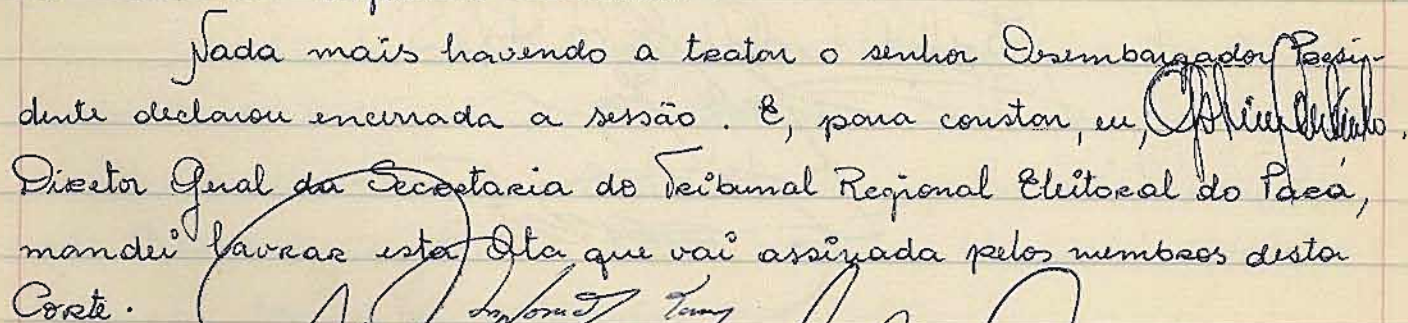 Nada mais havendo a tratar o senhor Desembargador Presi-
dente declarou encerrada a sessão. E, para constar, eu,
Diretor Geral da Secretaria do Tribunal Regional Eleitoral do Pará,
mandei lavrar esta Ata que vai assinada pelos membros desta
Corte.